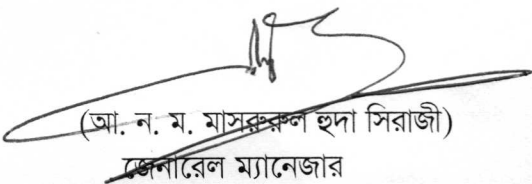 (আ. ন. ম. মাসরুরুল হুদা সিরাজী)
জেনারেল ম্যানেজার